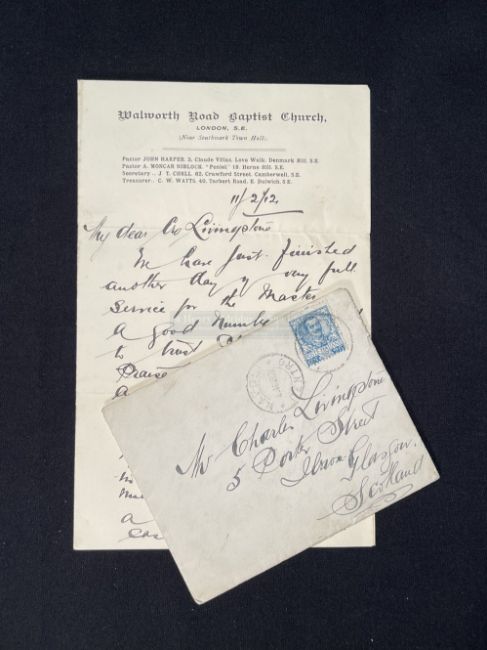 Walworth Road Baptist Church,
LONDON, S.E.
(Near Southwark Town Hall).
Pastor JOHN HARPER, 3, Claude Villas, Love Walk, Denmark Hill, S.E.
Pastor A. MONCAR NIBLOCK, "Peniel" 18 Herne Hill, S.E.
Secretary .. J. T. CHELL, 62, Crawford Street, Camberwell, S.E.
Treasurer.. C. W. WATTS, 40, Tarbert Road, E. Dulwich, S.E.
11/2/12
My dear Bro Livingstone
We have just finished
another day of very full
Service for the Master
a good numbe
to trust
Praise
a
a
Mr Charles Livingstone
5 Porter Street
Ibrox Glasgow.
Scotland